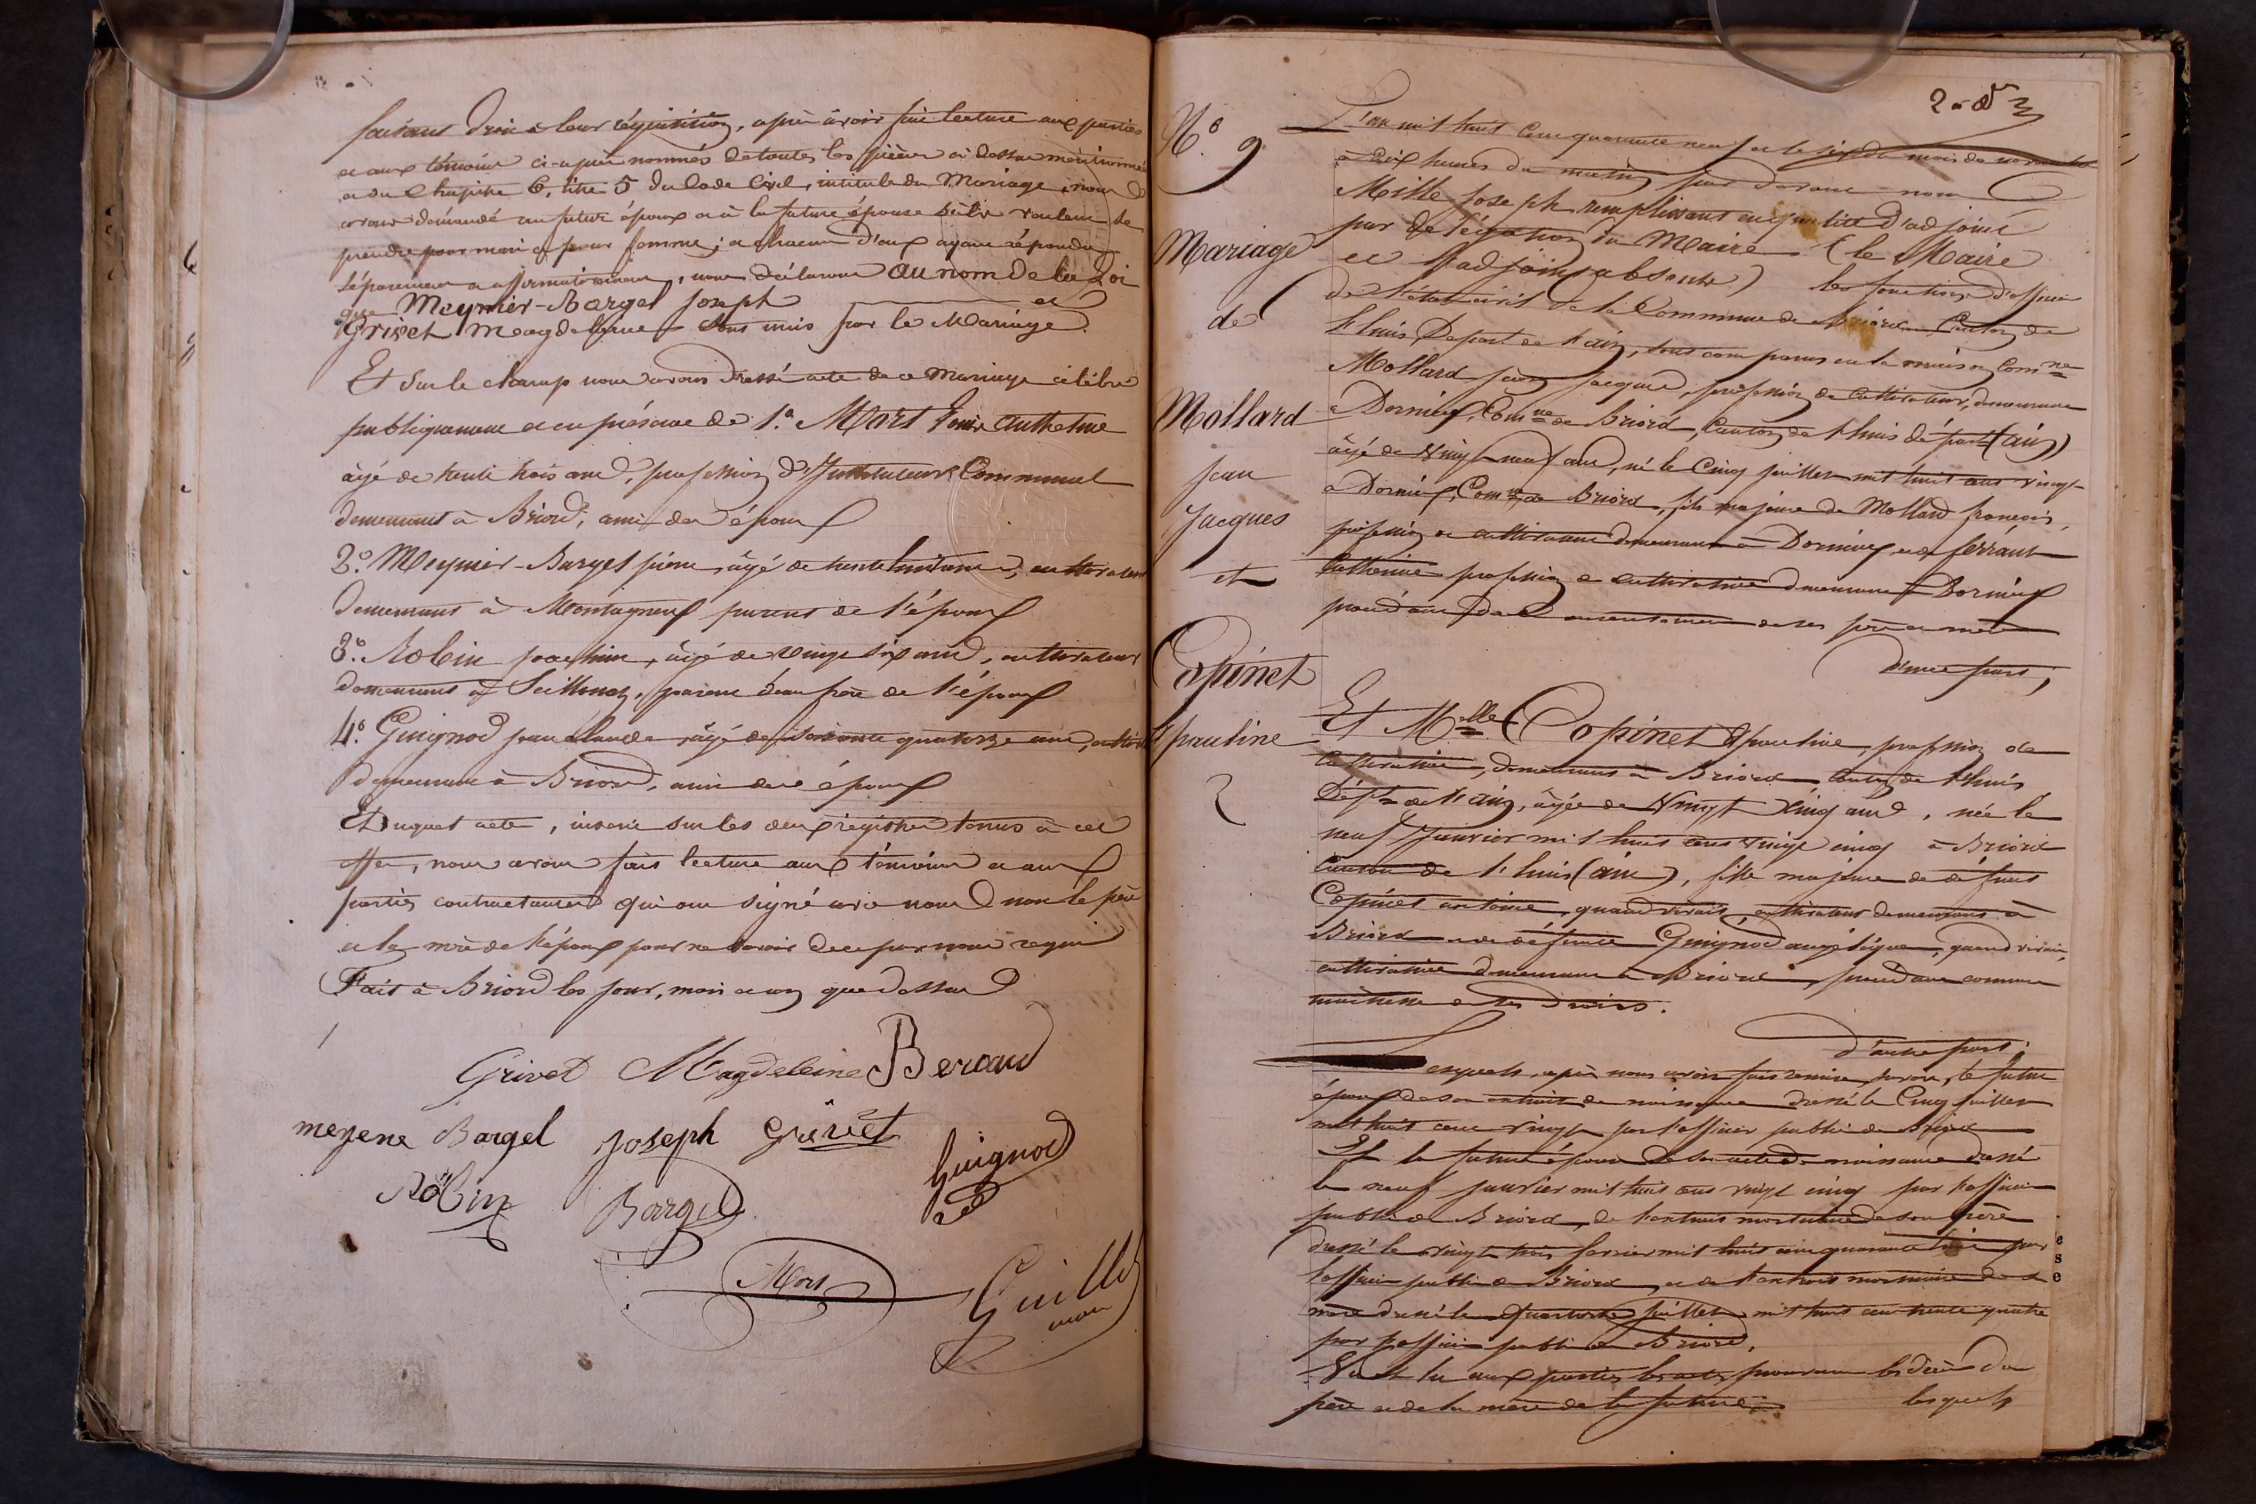 faisant droit à leur réquisition, après avoir fait lecture aux parties
et aux témoins ci-après nommés de toutes les pièces ci dessus mentionnés
et du Chapitre 6, titre 5 du Code Civil, intitulé du Mariage, nous
avons demandé au futur époux et à la future épouse s'ils veulent se
prendre pour mari et pour femme; et chacun d'eux ayant répondu
séparément et affirmativement, nous déclarons au nom de la Loi
que Meynier-Bargel Joseph et
Grivet Magdelaine sont unis par le Mariage.
Et sur le champ nous avons dressé acte de ce Mariage célébré
publiquement et en présence de 1.° Mort Louis Anthelme
âgé de trente trois ans, profession d'Instituteur Communal
demeurant à Briord, ami des époux
2.° Meynier-Bargel pierre, âgé de trente huit ans, cultivateur
demeurant à Montagneux parent de l'époux
3.° Robin joachim, âgé de vingt six ans, cultivateur
demeurant à Seillonaz, parent beau frère de l'époux
4.° Guignod jean claude âgé de soixante quatorze ans,
demeurant à Briord, ami des époux
Duquel acte, inscrit sur les deux registres tenus à cet
effet, nous avons fait lecture aux témoins et aux
parties contractantes qui ont signé avec nous non le père
et la mère de l'époux pour ne savoir de ce par nous requis
Fait à Briord les jour, mois et an que dessus
Grivet Magdeleine Beraud
meyene Bargel Joseph Grivet
Robin Bargel Guignod
Mort Guillo
2
N.° 9
Mariage
de
Mollard
Jean
Jacques
et
Copinet
pauline
L'an mil huit cent quarante neuf et le six du mois de novembre
à dix heures du matin par devant nous
Mille Joseph remplissant en qualité d'adjoint
par délégation du Maire (le Maire
et l'adjoint absents) les fonctions d'officier
de l'état civil de la Commune de Briord Canton de
Lhuis Depart de l'ain, sont comparus en la maison Com.ne
Mollard jean jacques, profession de cultivateur, demeurant
à Dornieux, Com.ne de Briord, Canton de Lhuis dépar.t (ain)
âgé de vingt neuf ans, né le Cinq juillet mil huit cent vingt
à Dornieux, Com.ne de Briord, fils majeur de Mollard françois,
profession de cultivateur demeurant à Dornieux et de ferrant
Catherine profession de cultivatrice demeurant à Dornieux
procédant du Consentement de ses père et mère
d'une part;
Et M.elle Copinet pauline, profession de
Cultivatrice, demeurant à Briord Canton de Lhuis
Dép.t de l'ain, âgée de Vingt Cinq ans, née le
neuf Janvier mil huit cent vingt cinq à Briord
Canton de Lhuis (ain), fille majeure de défunt
Copinet antoine, quand vivait, cultivateur demeurant à
Briord et de défunte Guignod angélique, quand vivait,
cultivatrice demeurant à Briord, procédant comme
maîtresse de ses Droits.
d'autre part.
Lesquels, après nous avoir fait remise, savoir, le futur
époux de son extrait de naissance dressé le Cinq juillet
mil huit cent vingt par l'officier public de Briord
Et la future épouse de son acte de naissance dressé
le neuf janvier mil huit cent vingt cinq par l'officier
public de Briord, de l'extrait mortuaire de son père
dressé le vingt trois fevrier mil huit cent quarante par
l'officier public de Briord, et de l'extrait mortuaire de sa
mère dressé le Quatorze juillet mil huit cent trente quatre
par l'officier public de Briord.
Vu et lu aux parties les actes prouvant les décès du
père et de la mère de la future,
lesquels